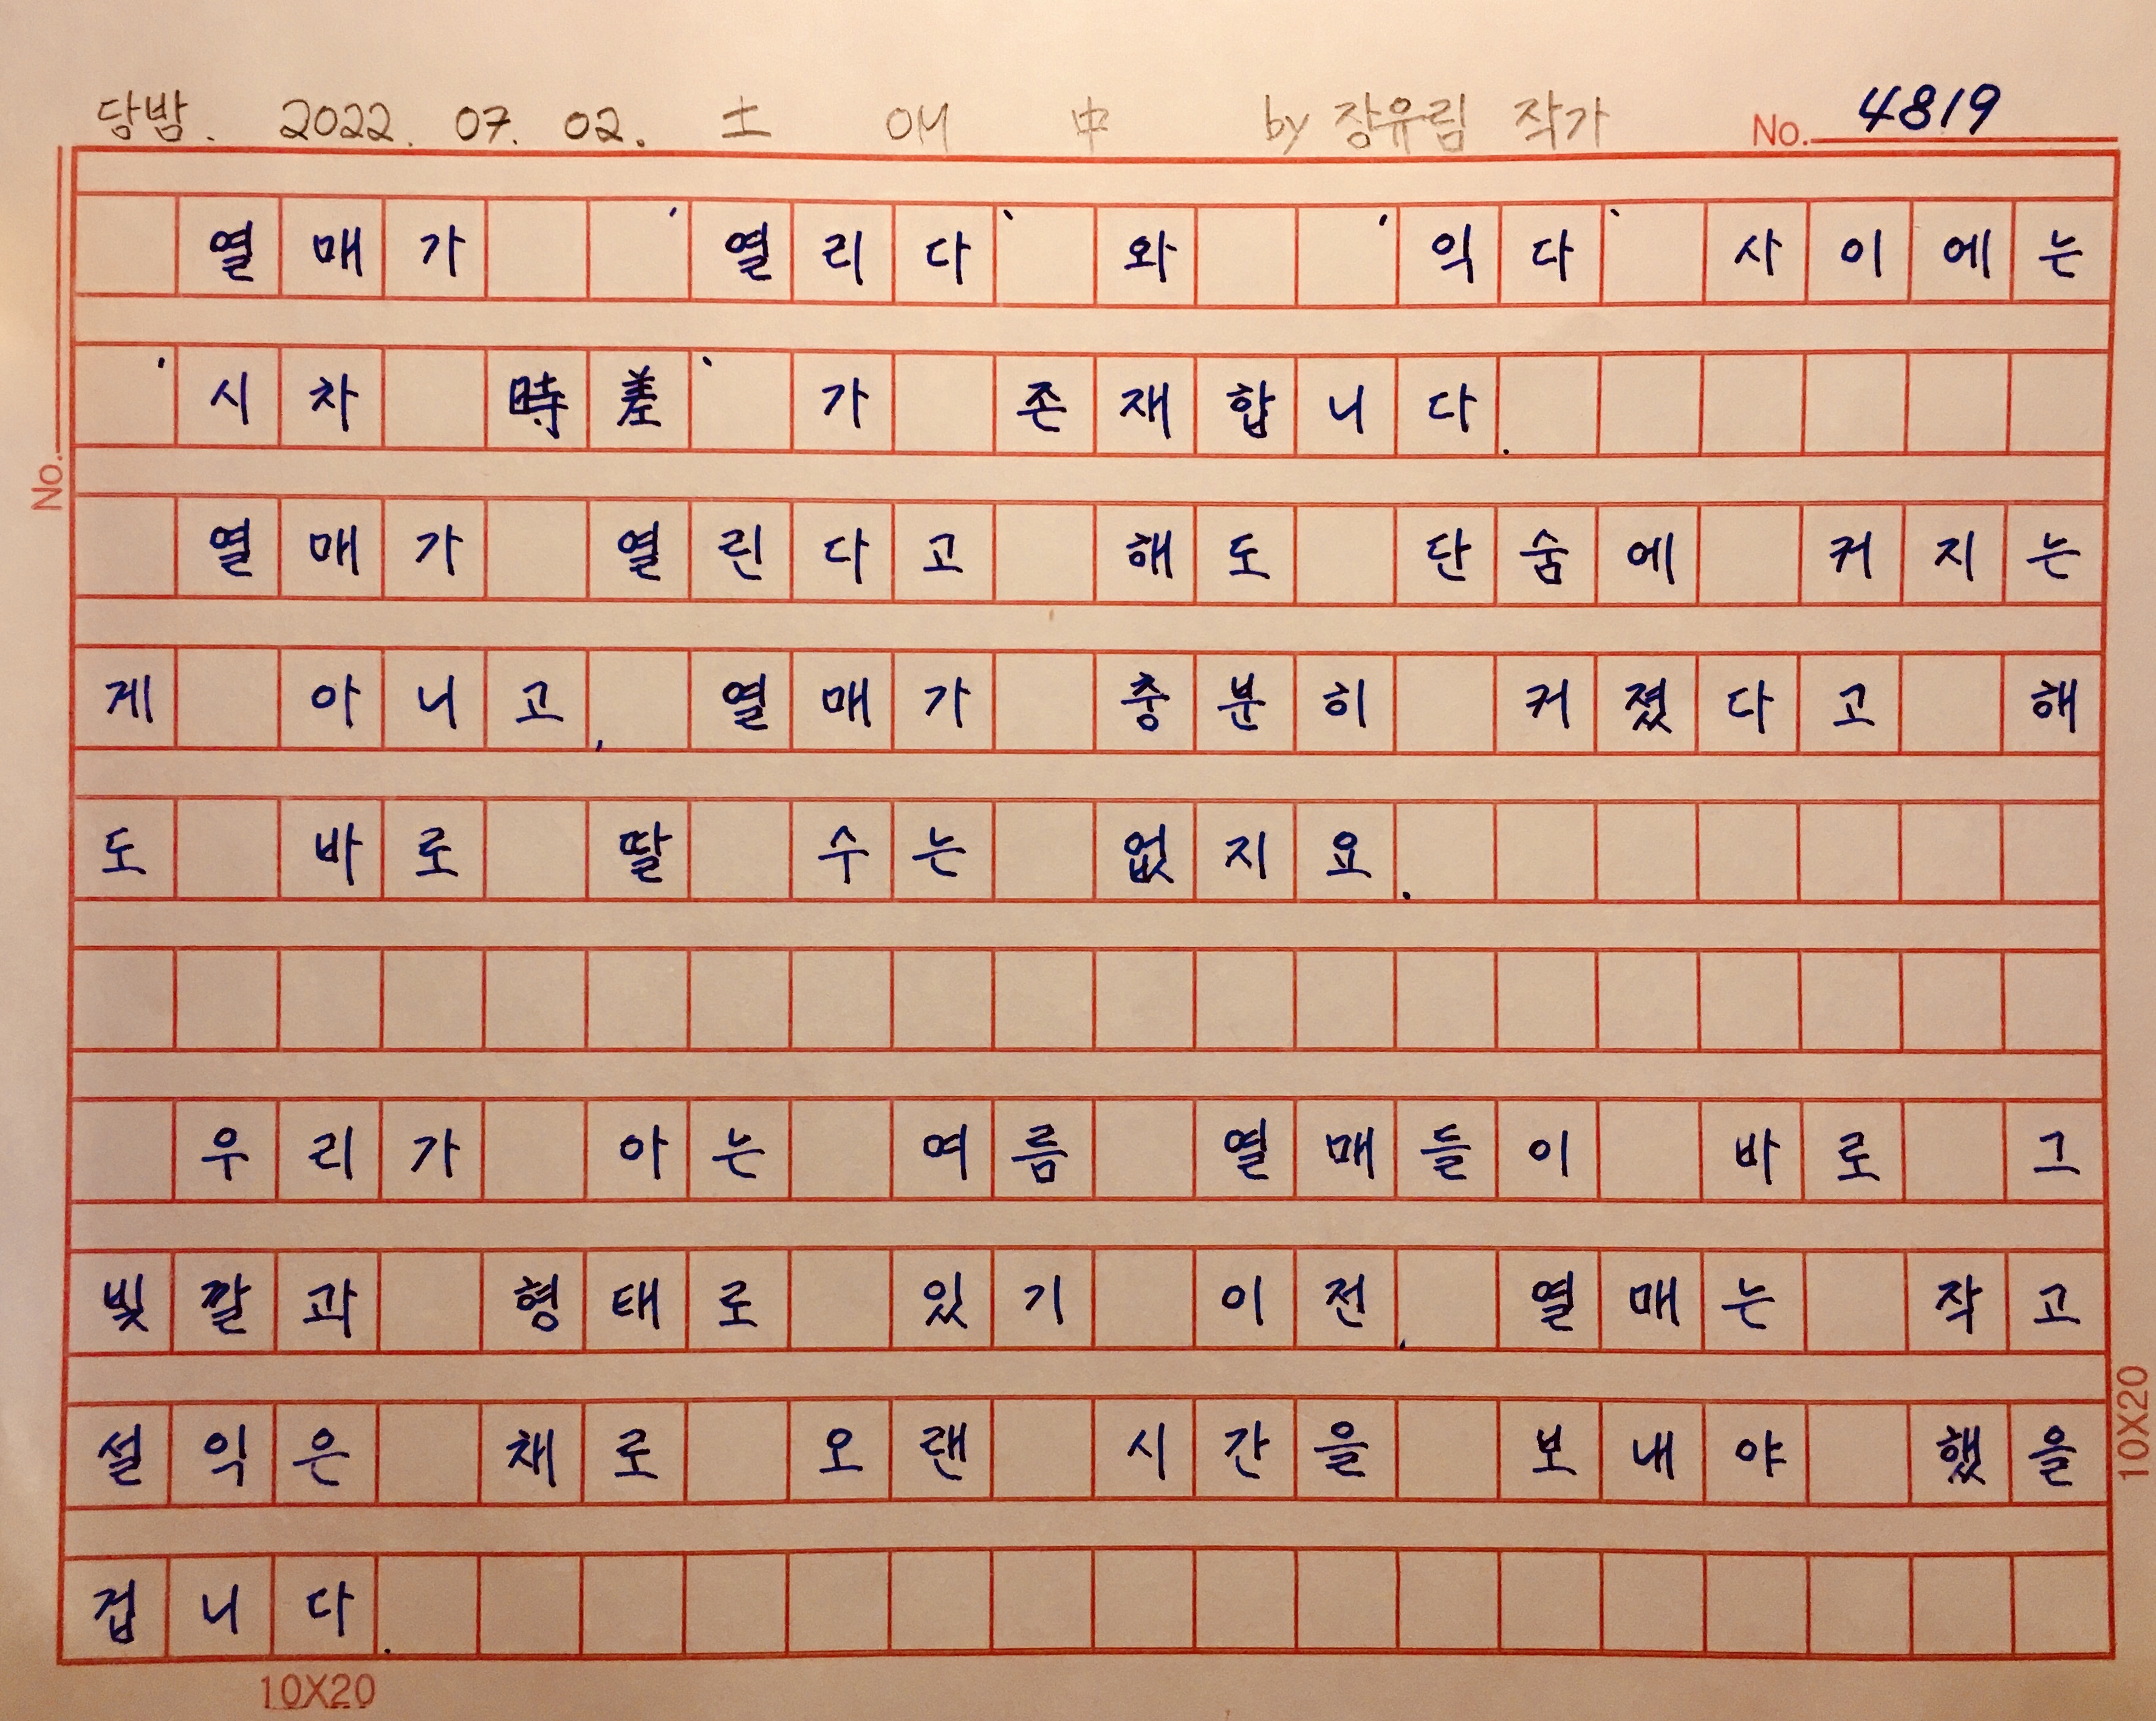 당밤. 2022. 07. 02. 土 애 中 by 장유림 작가 No. 4819
열매가 '열리다' 와 '익다' 사이에는
'시차 時差' 가 존재합니다.
No.
열매가 열린다고 해도 단숨에 커지는
게 아니고, 열매가 충분히 커졌다고 해
도 바로 딸 수는 없지요.
우리가 아는 여름 열매들이 바로 그
빛깔과 형태로 있기 이전, 열매는 작고
설익은 채로 오랜 시간을 보내야 했을
겁니다.
10X20
10X20